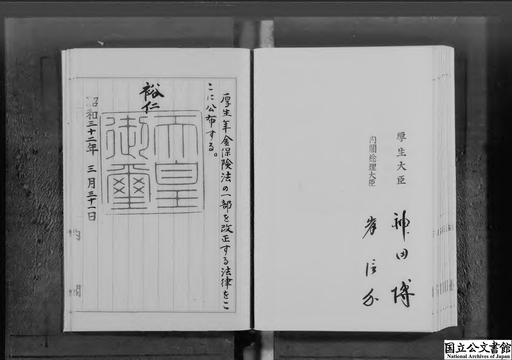 厚生年金保険法の一部を改正する法律をこ
こに公布する。
裕仁
天皇
御璽
昭和三十二年 三月三十一日
内閣
厚生大臣 神田博
内閣総理大臣 岸信介
国立公文書館
National Archives of Japan